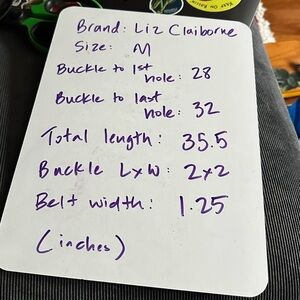 Brand: Liz Claiborne
Size: M
Buckle to 1st
hole: 28
Buckle to last
hole: 32
Total length: 35.5
Buckle LxW: 2x2
Belt width: 1.25
(inches)